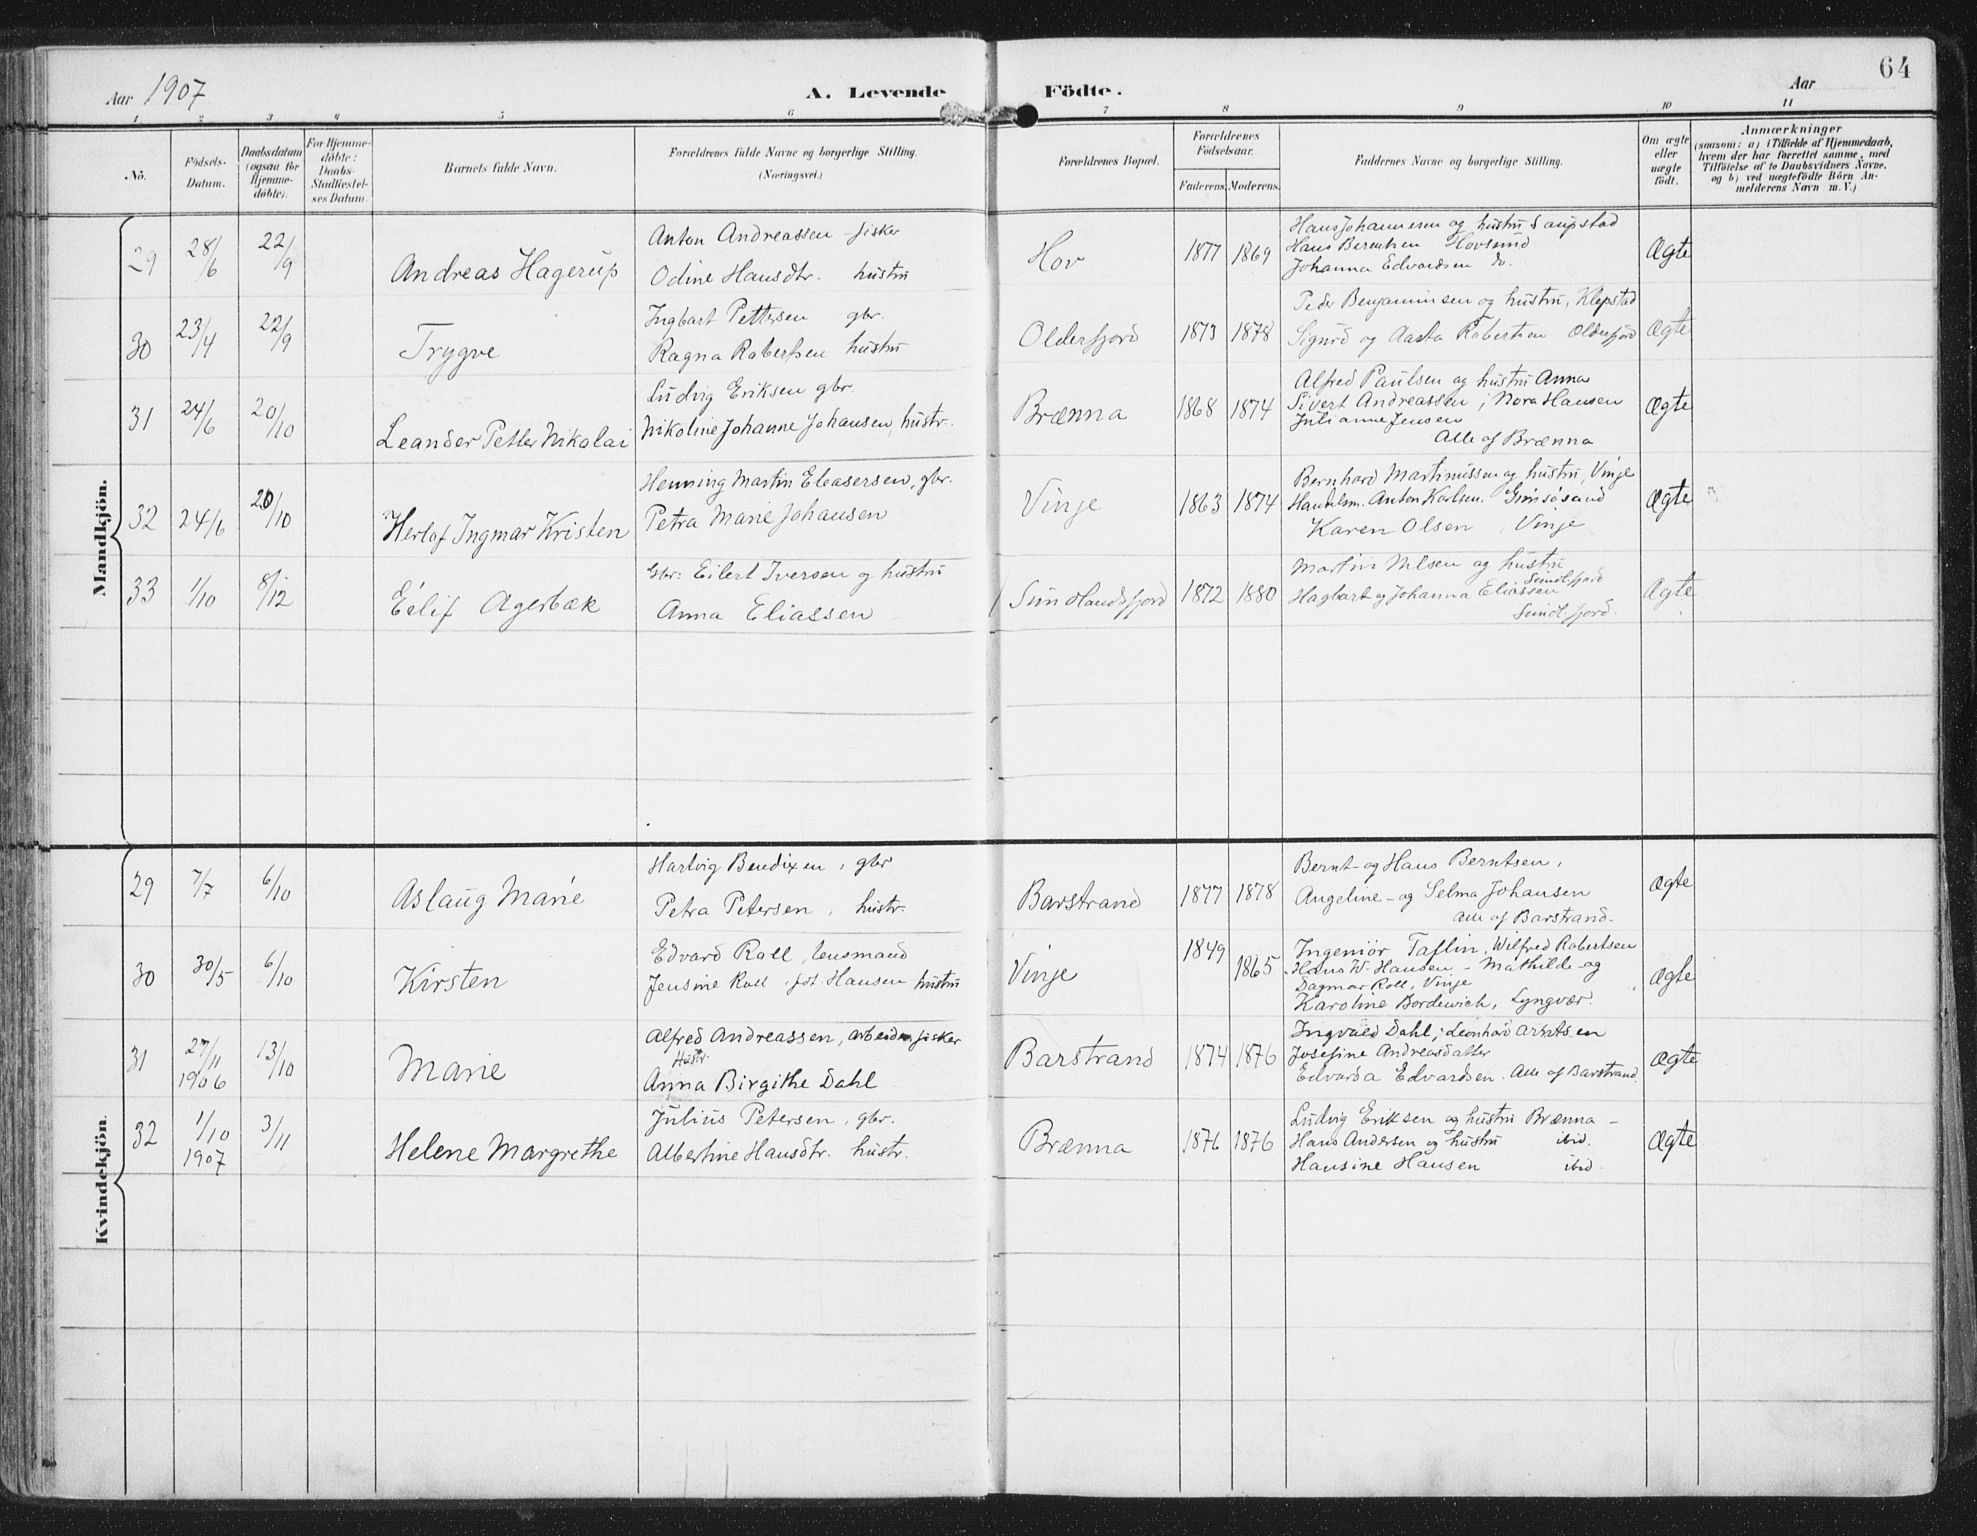 64
Aar 1907
A. Levende Födte.
Aar
1 2 3 4 5 6 7 8 9 10 11
No.
Födsels-Datum.
Daabsdatum (ogsaa for Hjemmedöbte).
For Hjemmedöbte: Daabs-Stadfæstelses Datum.
Barnets fulde Navn.
Forældrenes fulde Navne og borgerlige Stilling.
(Næringsvei.)
Forældrenes Bopæl.
Forældrenes Födselsaar.
Faderens. Moderens.
Faddernes Navne og borgerlige Stilling.
Om ægte eller uægte födt.
Anmærkninger
(saasom: a) i Tilfælde af Hjemmedaab,
hvem der har forrettet samme, med
Tilföielse af to Daabsvidners Navne,
og b) ved uægtefödte Börn An-
melderens Navn m. V.)
Mandkjön.
29 28/6 22/9 Andreas Hagerup
Anton Andreassen fisker
Odine Hansdtr. hustru
Hov 1877 1869
Hans Johannesen og hustru Saupstad
Hans Berentsen Hovsund
Johanna Edvardsen do.
Ægte
30 23/4 22/9 Trygve
Ingbart Pettersen gbr.
Ragna Robertsen hustru
Oldersfjord 1873 1878
Peder Benjaminsen og hustru, Klepstad
Sigurd og Aasta Robertsen Oldersfjord
Ægte
31 24/6 20/10 Leander Petter Nikolai
Ludvig Eriksen gbr.
Nikoline Johanne Johansen, hustr.
Brænna 1868 1874
Alfred Paulsen og hustru Anna
Sivert Andreassen, Nora Hansen
Julianne Jensen
Alle af Brænna
Ægte
32 24/6 20/10 Herlof Ingmar Kristen
Henning Martin Eleasersen, gbr.
Petra Marie Johansen
Vinje 1863 1874
Bernhard Martinussen og hustru, Vinje
Handelsm. Anton Karlsen, Gimsösund
Karen Olsen, Vinje
Ægte
33 1/10 8/12 Eilif Agerbæk
Gbr: Eilert Iversen og hustru
Anna Eliassen
Sundlandsfjord 1872 1880
Martin Nilsen og hustru
Sundlfjord
Hagbart og Johanna Eliassen
Sundlfjord.
Ægte
Kvindekjön.
29 7/7 6/10 Aslaug Marie
Hartvig Bendixen, gbr
Petra Petersen, hustr.
Barstrand 1877 1878
Bernt- og Hans Berntsen,
Angeline- og Selma Johansen
Alle af Barstrand-
Ægte
30 30/5 6/10 Kirsten
Edvard Roll, lensmand
Jensine Roll, föt Hansen hustru
Vinje 1849 1865
Ingeniör Taflin, Wilfred Robertsen
Hans W. Hansen - Mathilde- og
Dagmar Roll, Vinje
Karoline Bordewich, Lyngvær.
Ægte
31 27/11 1906 13/10 Marie
Alfred Andreassen, arbeider fisker
Hustr.
Anna Birgithe Dahl
Barstrand 1874 1876
Ingvald Dahl, Leonhard Arntsen
Josefine Andreasdatter
Edvarda Edvardsen. Alle af Barstrand.
Ægte
32 1/10 1907 3/11 Helene Margrethe
Julius Petersen, gbr.
Albertine Hansdtr. hustr.
Brænna 1876 1876
Ludvig Eriksen og hustru Brænna -
Hans Andersen og hustru ibid.
Hansine Hansen ibid.
Ægte